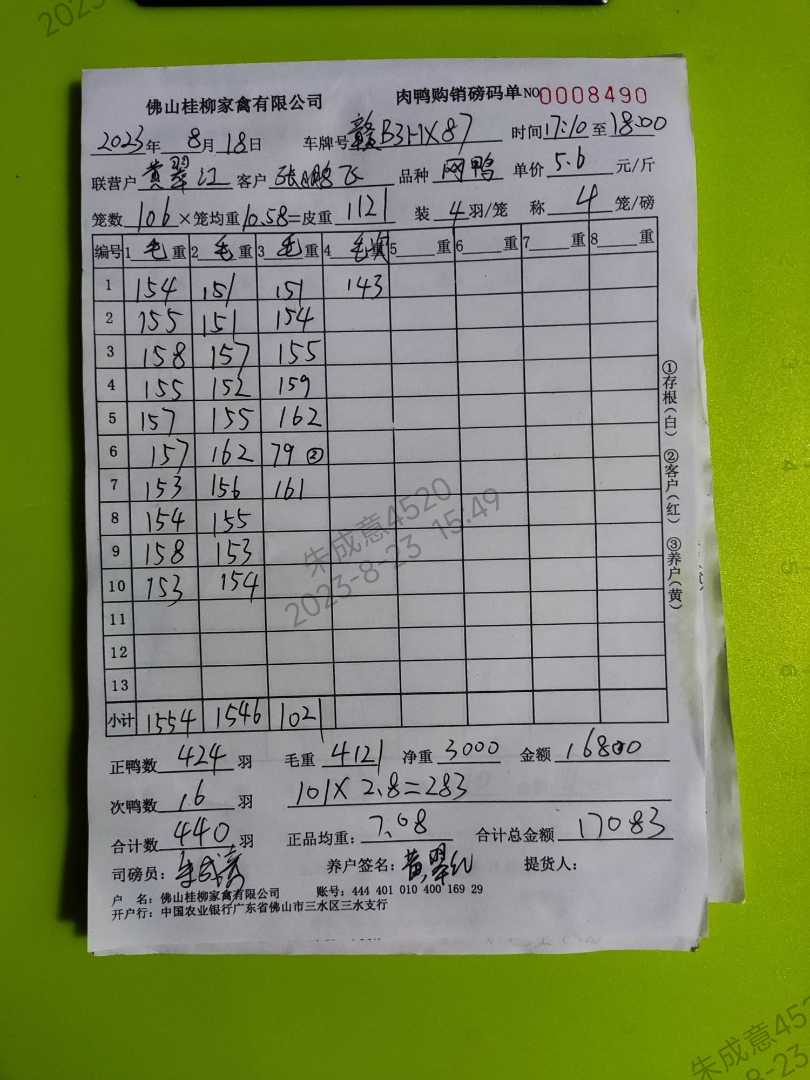 佛山桂柳家禽有限公司 肉鸭购销磅码单 NO 0008490
2023年 8月18日 车牌号 赣B3HX87 时间 17:10 至 18:00
联营户 黄翠江 客户 张鹏飞 品种 网鸭 单价 5.6 元/斤
笼数 106 ×笼均重 10.58 =皮重 1121 装 4 羽/笼 称 4 笼/磅
编号 1 毛 重 2 毛 重 3 毛 重 4 毛 重 5 重 6 重 7 重 8 重
1 154 151 151 143
2 155 151 154
3 158 157 155
4 155 152 159
5 157 155 162
6 157 162 79 ②
7 153 156 161
8 154 155
9 158 153
10 153 154
11
12
13
小计 1554 1546 1021
①存根(白) ②客户(红) ③养户(黄)
正鸭数 424 羽 毛重 4121 净重 3000 金额 16800
次鸭数 16 羽 101× 2.8=283
合计数 440 羽 正品均重: 7.08 合计总金额 17083
司磅员: 养户签名: 黄翠江 提货人:
户 名: 佛山桂柳家禽有限公司 账号: 444 401 010 400 169 29
开户行: 中国农业银行广东省佛山市三水区三水支行
朱成意4520
2023-8-23 15:49